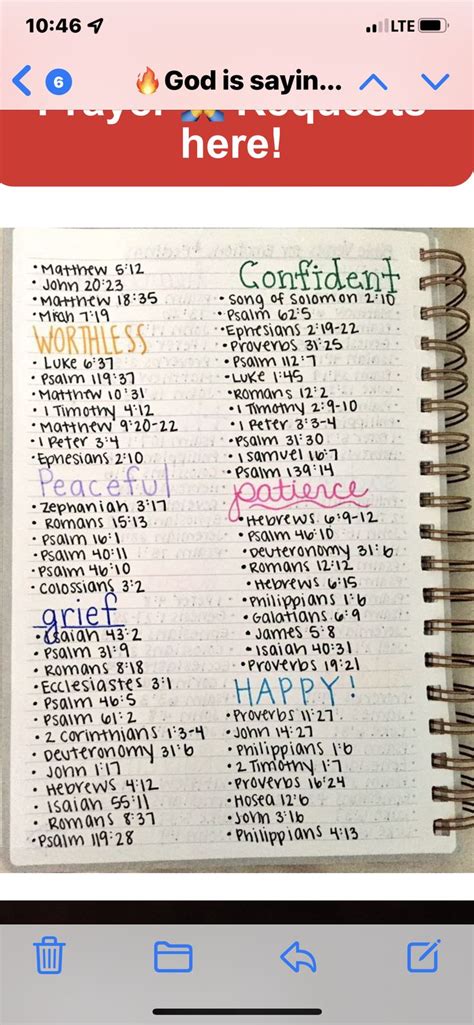 10:46
LTE
6
🔥God is sayin...
Prayer 🙏 Requests
here!
• Matthew 5:12
• John 20:23
• Matthew 18:35
• Micah 7:19
WORTHLESS
• Luke 6:37
• Psalm 119:37
• Matthew 10:31
• 1 Timothy 4:12
• Matthew 9:20-22
• 1 Peter 3:4
• Ephesians 2:10
Peaceful
• Zephaniah 3:17
• Romans 15:13
• Psalm 16:1
• Psalm 40:11
• Psalm 46:10
• Colossians 3:2
grief
• Isaiah 43:2
• Psalm 31:9
• Romans 8:18
• Ecclesiastes 3:1
• Psalm 46:5
• Psalm 61:2
• 2 Corinthians 1:3-4
• Deuteronomy 31:6
• John 1:17
• Hebrews 4:12
• Isaiah 55:11
• Romans 8:37
• Psalm 119:28
Confident
• Song of Solomon 2:10
• Psalm 62:5
• Ephesians 2:19-22
• Proverbs 31:25
• Psalm 112:7
• Luke 1:45
• Romans 12:2
• 1 Timothy 2:9-10
• 1 Peter 3:3-4
• Psalm 31:30
• 1 Samuel 16:7
• Psalm 139:14
patience
• Hebrews 6:9-12
• Psalm 46:10
• Deuteronomy 31:6
• Romans 12:12
• Hebrews 6:15
• Philippians 1:6
• Galatians 6:9
• James 5:8
• Isaiah 40:31
• Proverbs 19:21
HAPPY!
• Proverbs 11:27
• John 14:27
• Philippians 1:6
• 2 Timothy 1:7
• Proverbs 16:24
• Hosea 12:6
• John 3:16
• Philippians 4:13